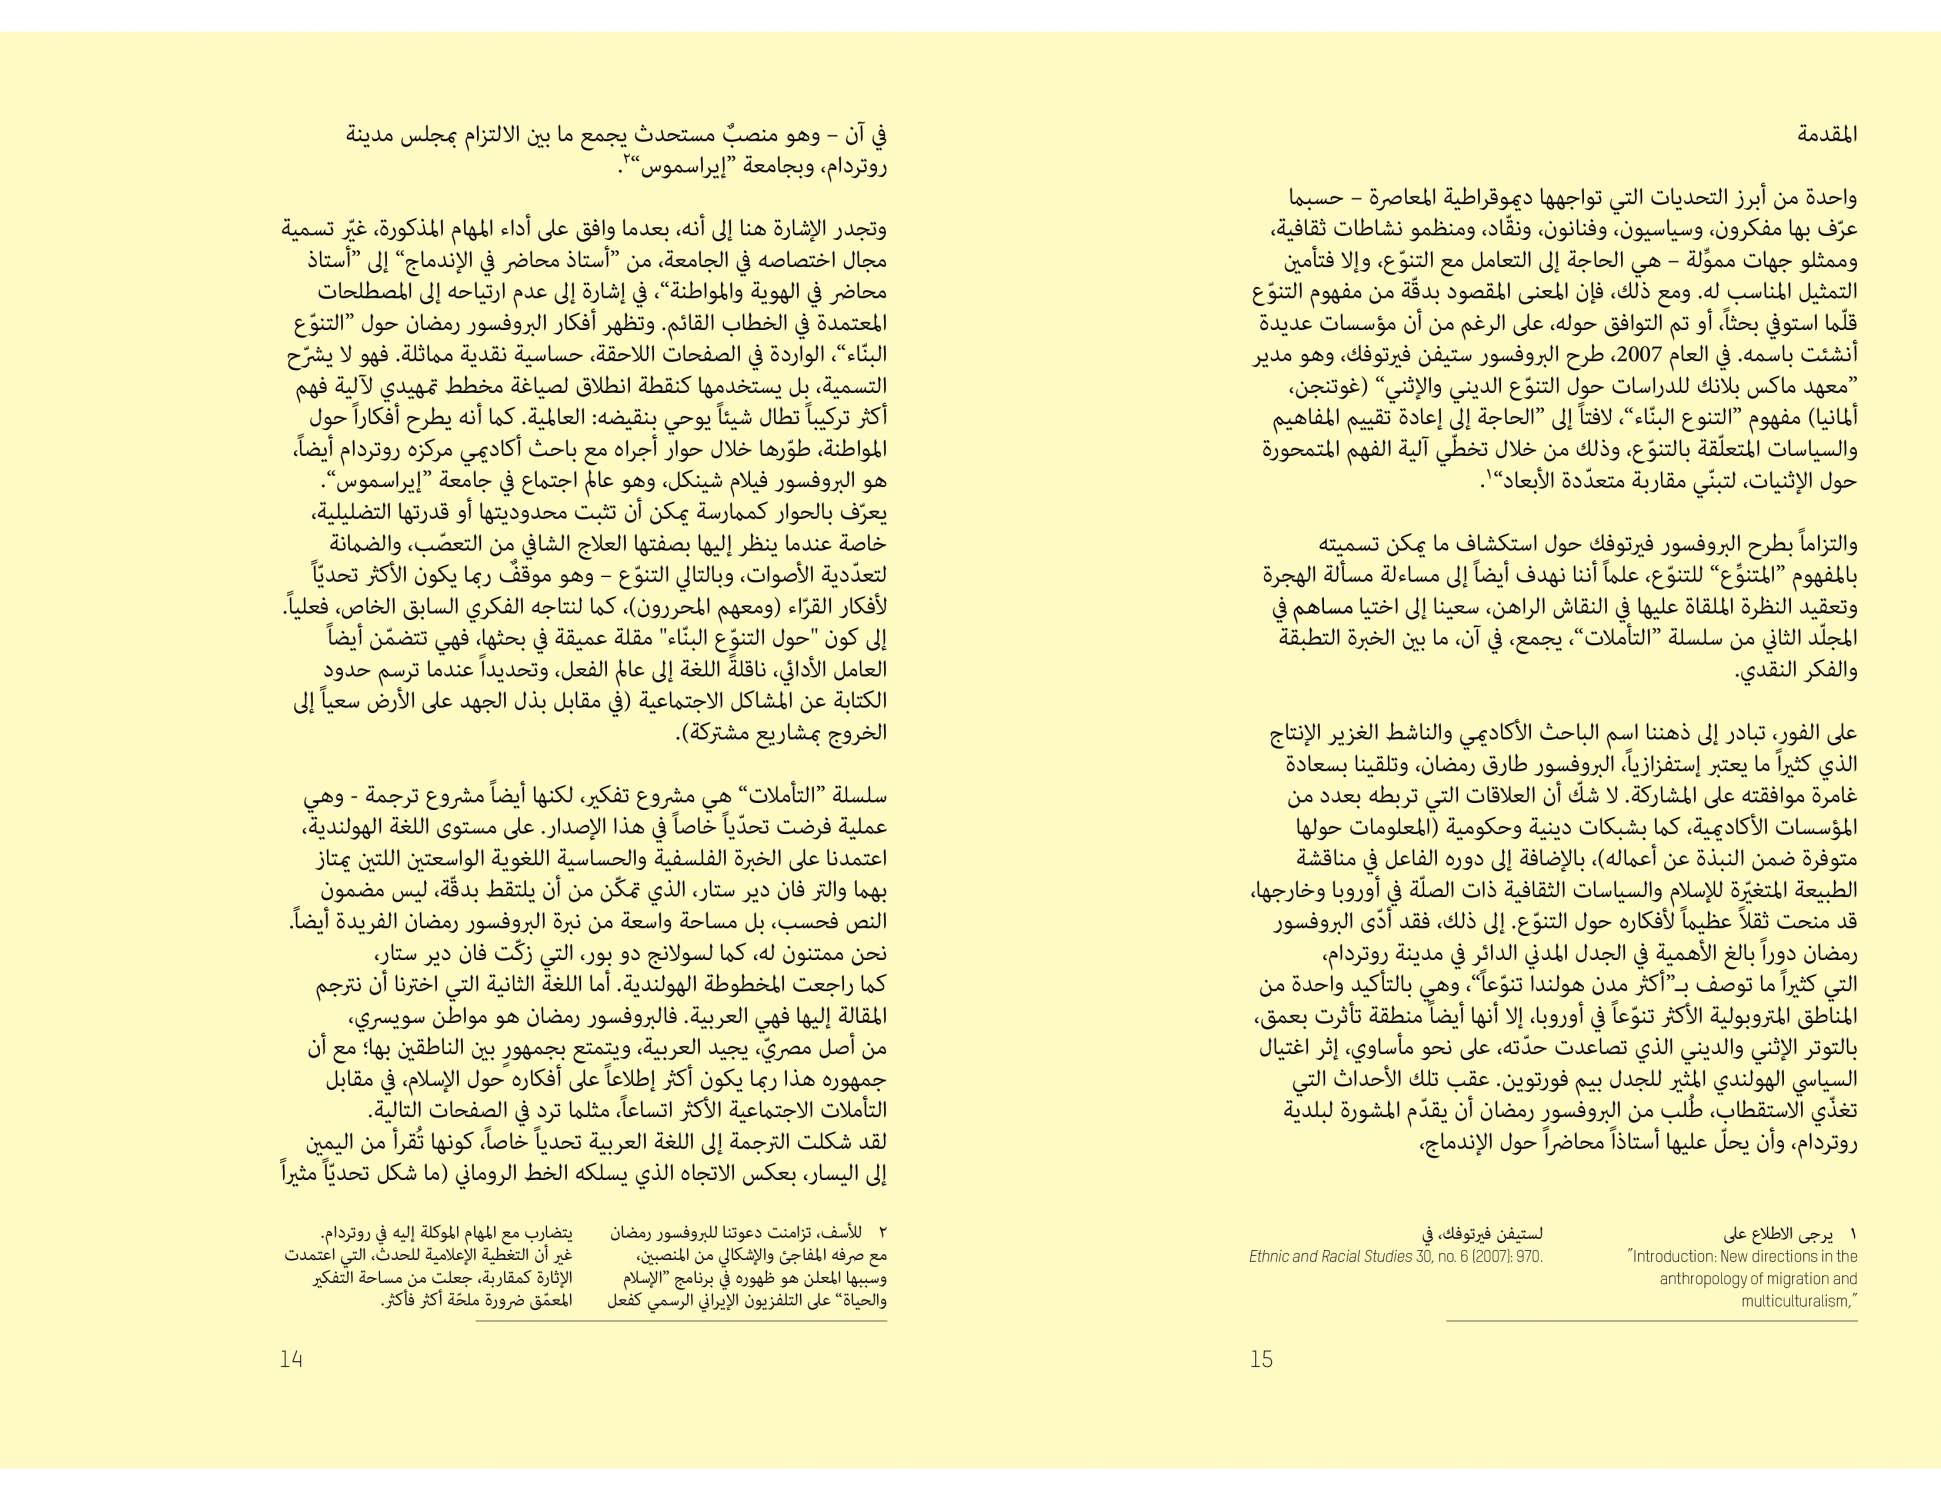 المقدمة
واحدة من أبرز التحديات التي تواجهها ديموقراطية المعاصرة – حسبما
عرّف بها مفكرون، وسياسيون، وفنانون، ونقّاد، ومنظمو نشاطات ثقافية،
وممثلو جهات مموِّلة – هي الحاجة إلى التعامل مع التنوّع، وإلا فتأمين
التمثيل المناسب له. ومع ذلك، فإن المعنى المقصود بدقّة من مفهوم التنوّع
قلّما استوفي بحثاً، أو تم التوافق حوله، على الرغم من أن مؤسسات عديدة
أنشئت باسمه. في العام 2007، طرح البروفسور ستيفن فيرتوفك، وهو مدير
”معهد ماكس بلانك للدراسات حول التنوّع الديني والإثني“ (غوتنجن،
ألمانيا) مفهوم ”التنوع البنّاء“، لافتاً إلى ”الحاجة إلى إعادة تقييم المفاهيم
والسياسات المتعلّقة بالتنوّع، وذلك من خلال تخطّي آلية الفهم المتمحورة
حول الإثنيات، لتبنّي مقاربة متعدّدة الأبعاد“١.
والتزاماً بطرح البروفسور فيرتوفك حول استكشاف ما يمكن تسميته
بالمفهوم ”المتنوِّع“ للتنوّع، علماً أننا نهدف أيضاً إلى مساءلة مسألة الهجرة
وتعقيد النظرة الملقاة عليها في النقاش الراهن، سعينا إلى اختيا مساهم في
المجلّد الثاني من سلسلة ”التأملات“، يجمع، في آن، ما بين الخبرة التطبقة
والفكر النقدي.
على الفور، تبادر إلى ذهننا اسم الباحث الأكاديمي والناشط الغزير الإنتاج
الذي كثيراً ما يعتبر إستفزازياً، البروفسور طارق رمضان، وتلقينا بسعادة
غامرة موافقته على المشاركة. لا شكّ أن العلاقات التي تربطه بعدد من
المؤسسات الأكاديمية، كما بشبكات دينية وحكومية (المعلومات حولها
متوفرة ضمن النبذة عن أعماله)، بالإضافة إلى دوره الفاعل في مناقشة
الطبيعة المتغيّرة للإسلام والسياسات الثقافية ذات الصلّة في أوروبا وخارجها،
قد منحت ثقلاً عظيماً لأفكاره حول التنوّع. إلى ذلك، فقد أدّى البروفسور
رمضان دوراً بالغ الأهمية في الجدل المدني الدائر في مدينة روتردام،
التي كثيراً ما توصف بــ”أكثر مدن هولندا تنوّعاً“، وهي بالتأكيد واحدة من
المناطق المتروبولية الأكثر تنوّعاً في أوروبا، إلا أنها أيضاً منطقة تأثرت بعمق،
بالتوتر الإثني والديني الذي تصاعدت حدّته، على نحو مأساوي، إثر اغتيال
السياسي الهولندي المثير للجدل بيم فورتوين. عقب تلك الأحداث التي
تغذّي الاستقطاب، طُلب من البروفسور رمضان أن يقدّم المشورة لبلدية
روتردام، وأن يحلّ عليها أستاذاً محاضراً حول الإندماج،
١ يرجى الاطلاع على
”Introduction: New directions in the
anthropology of migration and
multiculturalism,”
لستيفن فيرتوفك، في
Ethnic and Racial Studies 30, no. 6 (2007): 970.
15
في آن – وهو منصبٌ مستحدث يجمع ما بين الالتزام بمجلس مدينة
روتردام، وبجامعة ”إيراسموس“٢.
وتجدر الإشارة هنا إلى أنه، بعدما وافق على أداء المهام المذكورة، غيّر تسمية
مجال اختصاصه في الجامعة، من ”أستاذ محاضر في الإندماج“ إلى ”أستاذ
محاضر في الهوية والمواطنة“، في إشارة إلى عدم ارتياحه إلى المصطلحات
المعتمدة في الخطاب القائم. وتظهر أفكار البروفسور رمضان حول ”التنوّع
البنّاء“، الواردة في الصفحات اللاحقة، حساسية نقدية مماثلة. فهو لا يشرّح
التسمية، بل يستخدمها كنقطة انطلاق لصياغة مخطط تمهيدي لآلية فهم
أكثر تركيباً تطال شيئاً يوحي بنقيضه: العالمية. كما أنه يطرح أفكاراً حول
المواطنة، طوّرها خلال حوار أجراه مع باحث أكاديمي مركزه روتردام أيضاً،
هو البروفسور فيلام شينكل، وهو عالم اجتماع في جامعة ”إيراسموس“.
يعرّف بالحوار كممارسة يمكن أن تثبت محدوديتها أو قدرتها التضليلية،
خاصة عندما ينظر إليها بصفتها العلاج الشافي من التعصّب، والضمانة
لتعدّدية الأصوات، وبالتالي التنوّع – وهو موقفٌ ربما يكون الأكثر تحديّاً
لأفكار القرّاء (ومعهم المحررون)، كما لنتاجه الفكري السابق الخاص، فعلياً.
إلى كون "حول التنوّع البنّاء" مقلة عميقة في بحثها، فهي تتضمّن أيضاً
العامل الأدائي، ناقلةً اللغة إلى عالم الفعل، وتحديداً عندما ترسم حدود
الكتابة عن المشاكل الاجتماعية (في مقابل بذل الجهد على الأرض سعياً إلى
الخروج بمشاريع مشتركة).
سلسلة ”التأملات“ هي مشروع تفكير، لكنها أيضاً مشروع ترجمة - وهي
عملية فرضت تحدّياً خاصاً في هذا الإصدار. على مستوى اللغة الهولندية،
اعتمدنا على الخبرة الفلسفية والحساسية اللغوية الواسعتين اللتين يمتاز
بهما والتر فان دير ستار، الذي تمكّن من أن يلتقط بدقّة، ليس مضمون
النص فحسب، بل مساحة واسعة من نبرة البروفسور رمضان الفريدة أيضاً.
نحن ممتنون له، كما لسولانج دو بور، التي زكّت فان دير ستار،
كما راجعت المخطوطة الهولندية. أما اللغة الثانية التي اخترنا أن نترجم
المقالة إليها فهي العربية. فالبروفسور رمضان هو مواطن سويسري،
من أصل مصريّ، يجيد العربية، ويتمتع بجمهورٍ بين الناطقين بها؛ مع أن
جمهوره هذا ربما يكون أكثر إطلاعاً على أفكاره حول الإسلام، في مقابل
التأملات الاجتماعية الأكثر اتساعاً، مثلما ترد في الصفحات التالية.
لقد شكلت الترجمة إلى اللغة العربية تحدياً خاصاً، كونها تُقرأ من اليمين
إلى اليسار، بعكس الاتجاه الذي يسلكه الخط الروماني (ما شكل تحديّاً مثيراً
٢ للأسف، تزامنت دعوتنا للبروفسور رمضان
مع صرفه المفاجئ والإشكالي من المنصبين،
وسببها المعلن هو ظهوره في برنامج ”الإسلام
والحياة“ على التلفزيون الإيراني الرسمي كفعل
يتضارب مع المهام الموكلة إليه في روتردام.
غير أن التغطية الإعلامية للحدث، التي اعتمدت
الإثارة كمقاربة، جعلت من مساحة التفكير
المعمّق ضرورة ملحّة أكثر فأكثر.
14